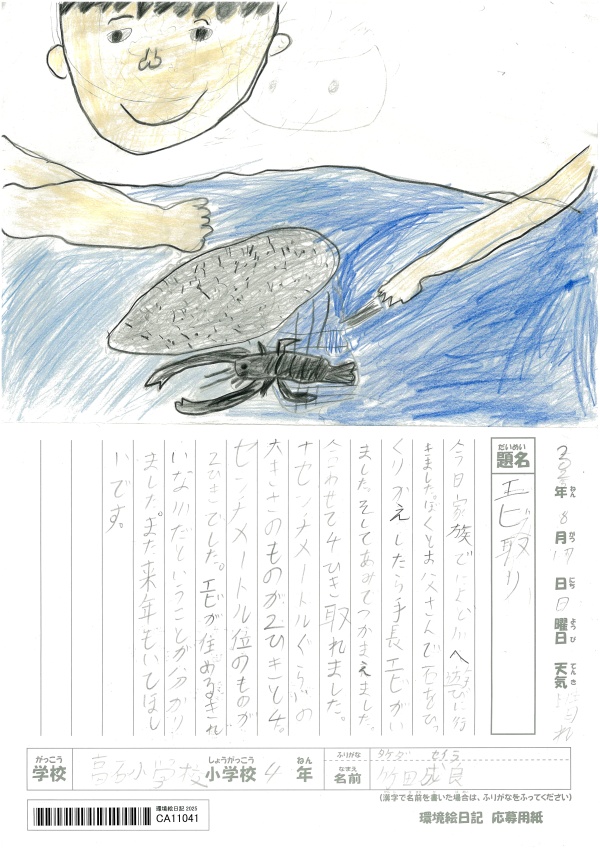 年 8月17日 日曜日 天気 晴れ
ねん がつ にち ようび てんき
だいめい
題名 エビ取り
今日家族で 川へ遊びに行
きました。ぼくとお父さんで石をひっ
くりかえしたら手長エビがい
ました。そしてあみでつかまえました。
合わせて4ひき取れました。
十センチメートルぐらいの
大きさのものが2ひきと4、
センチメートル位のものが
2ひきでした。エビが住めるきれ
いな川だということが分かり
ました。また来年もいてほし
いです。
がっこう しょうがっこう ねん
学校 高石小学校 小学校 4 年
ふりがな タケダ セイラ
なまえ
名前 竹田成良
(漢字で名前を書いた場合は、ふりがなをふってください)
環境絵日記2025
CA11041
環境絵日記 応募用紙